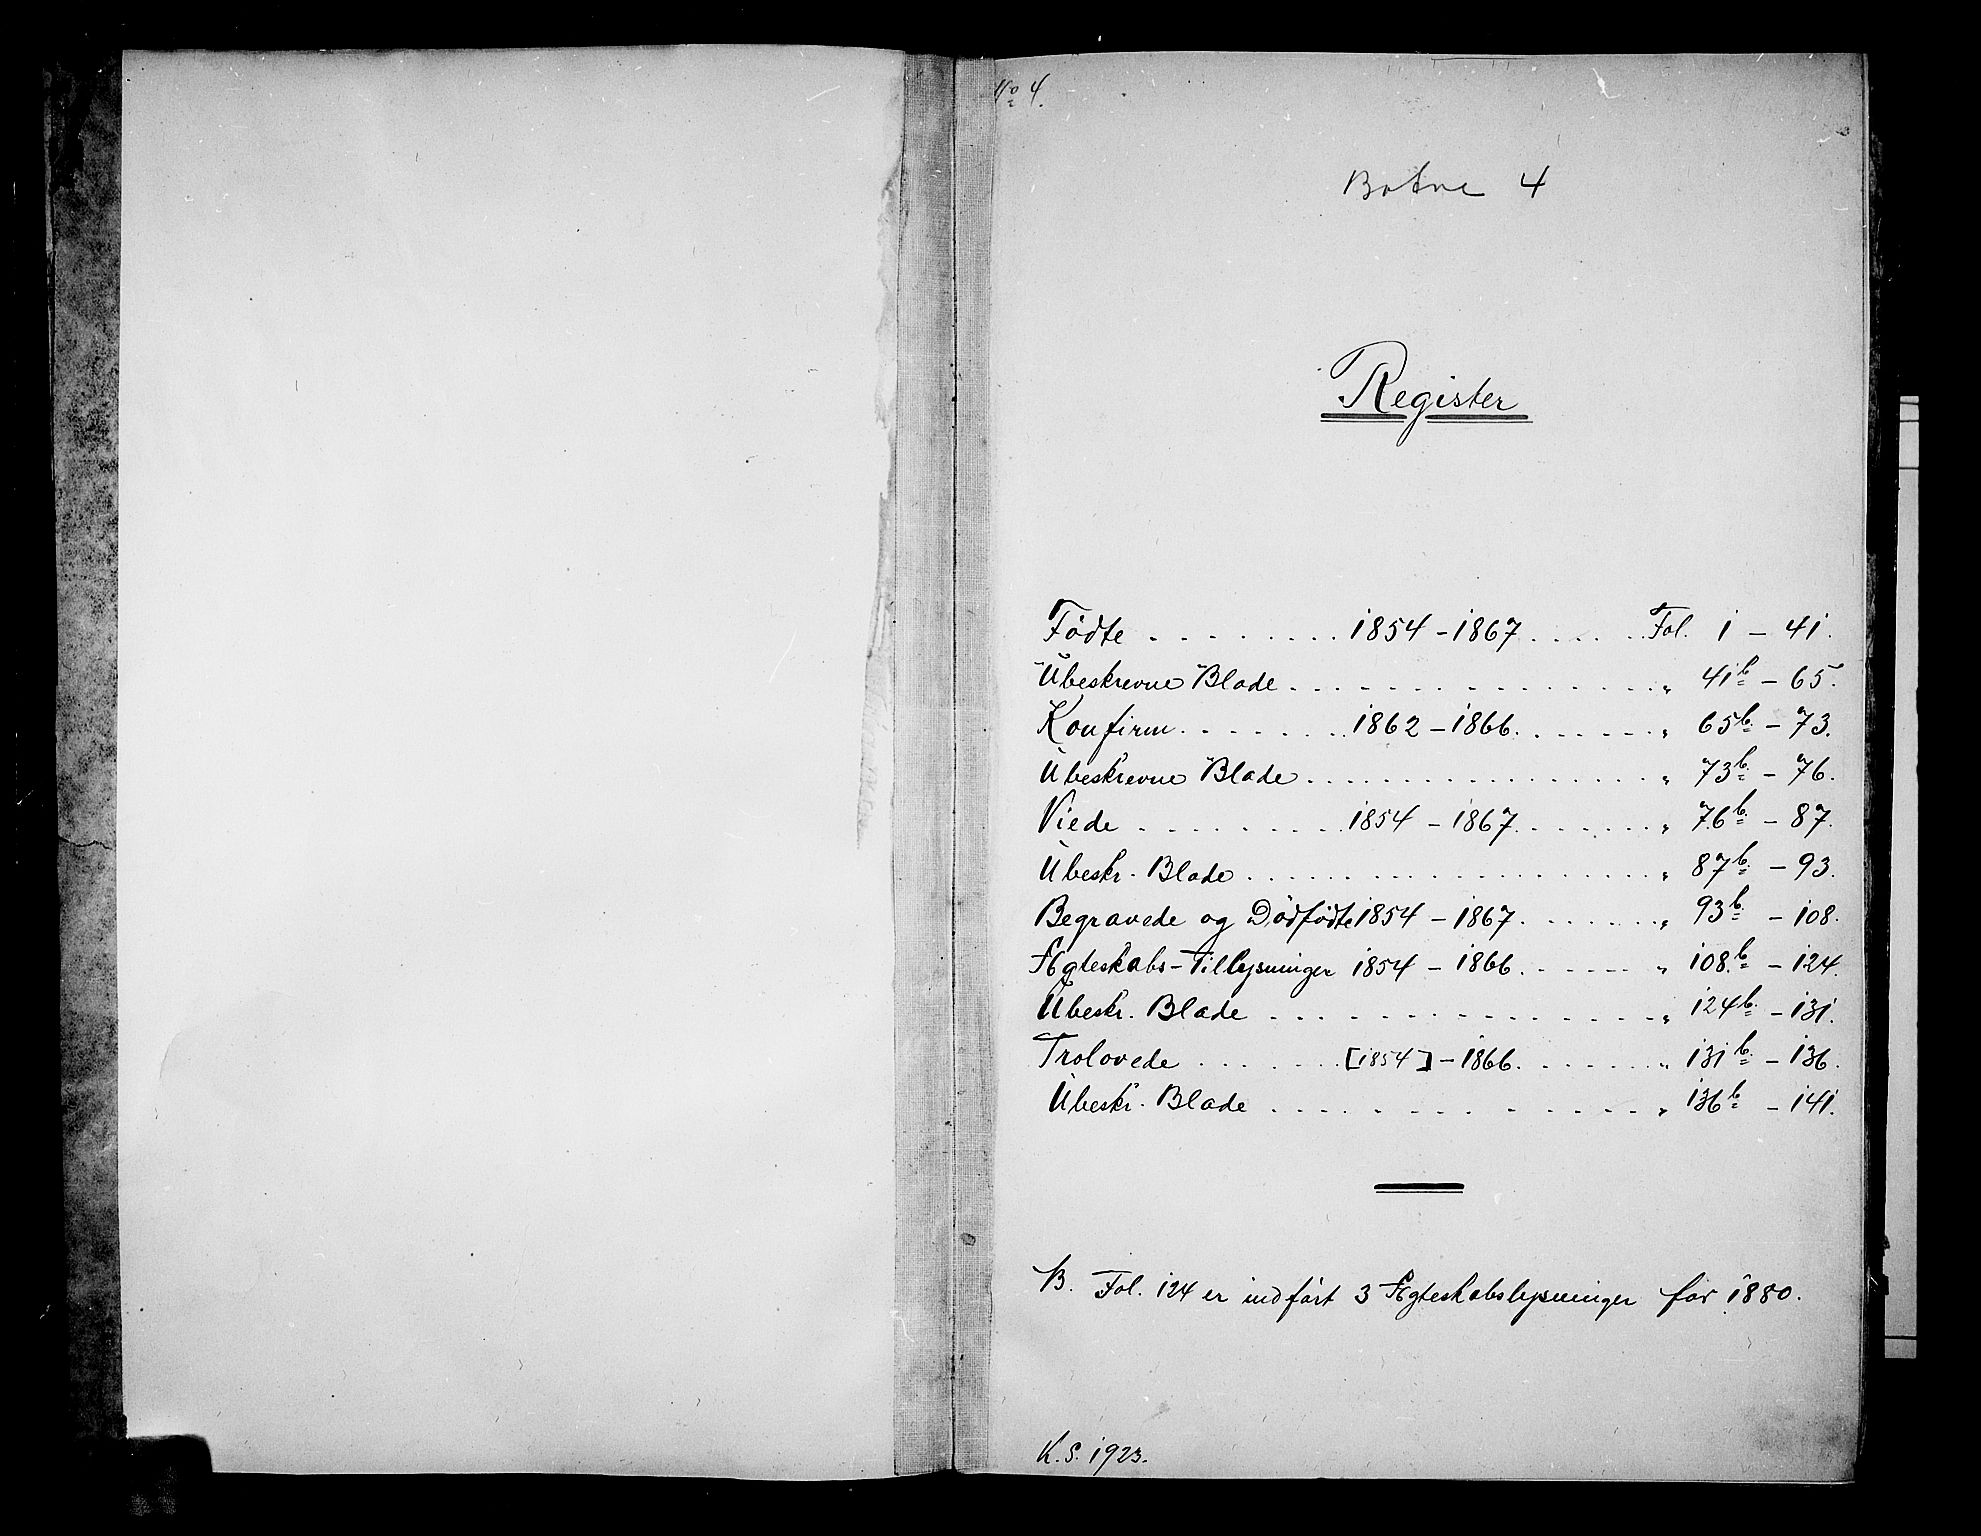 No 4.
Botne 4
Register
Fødte . . . . . . . . 1854 - 1867 . . . . . Fol. 1 - 41.
Ubeskrevne Blade . . . . . . . . . . . . . . . „ 41b - 65.
Konfirm. . . . . . . . 1862 - 1866. . . . . . . „ 65b - 73.
Ubeskrevne Blade . . . . . . . . . . . . . . . „ 73b - 76.
Viede . . . . . . . . 1854 - 1867 . . . . . . „ 76b - 87.
Ubeskr. Blade . . . . . . . . . . . . . . . . . „ 87b - 93.
Begravede og Dødfødte 1854 - 1867. . . . . . „ 93b - 108.
Ægteskabs-Tillysninger 1854 - 1866. . . . . . „ 108b - 124.
Ubeskr. Blade . . . . . . . . . . . . . . . . „ 124b - 131.
Trolovede . . . . . . . [1854] - 1866. . . . . . „ 131b - 136.
Ubeskr. Blade . . . . . . . . . . . . . . . . „ 136b - 141.
B. Fol. 124 er indført 3 Ægteskabslysninger for 1880.
K. S. 1923.